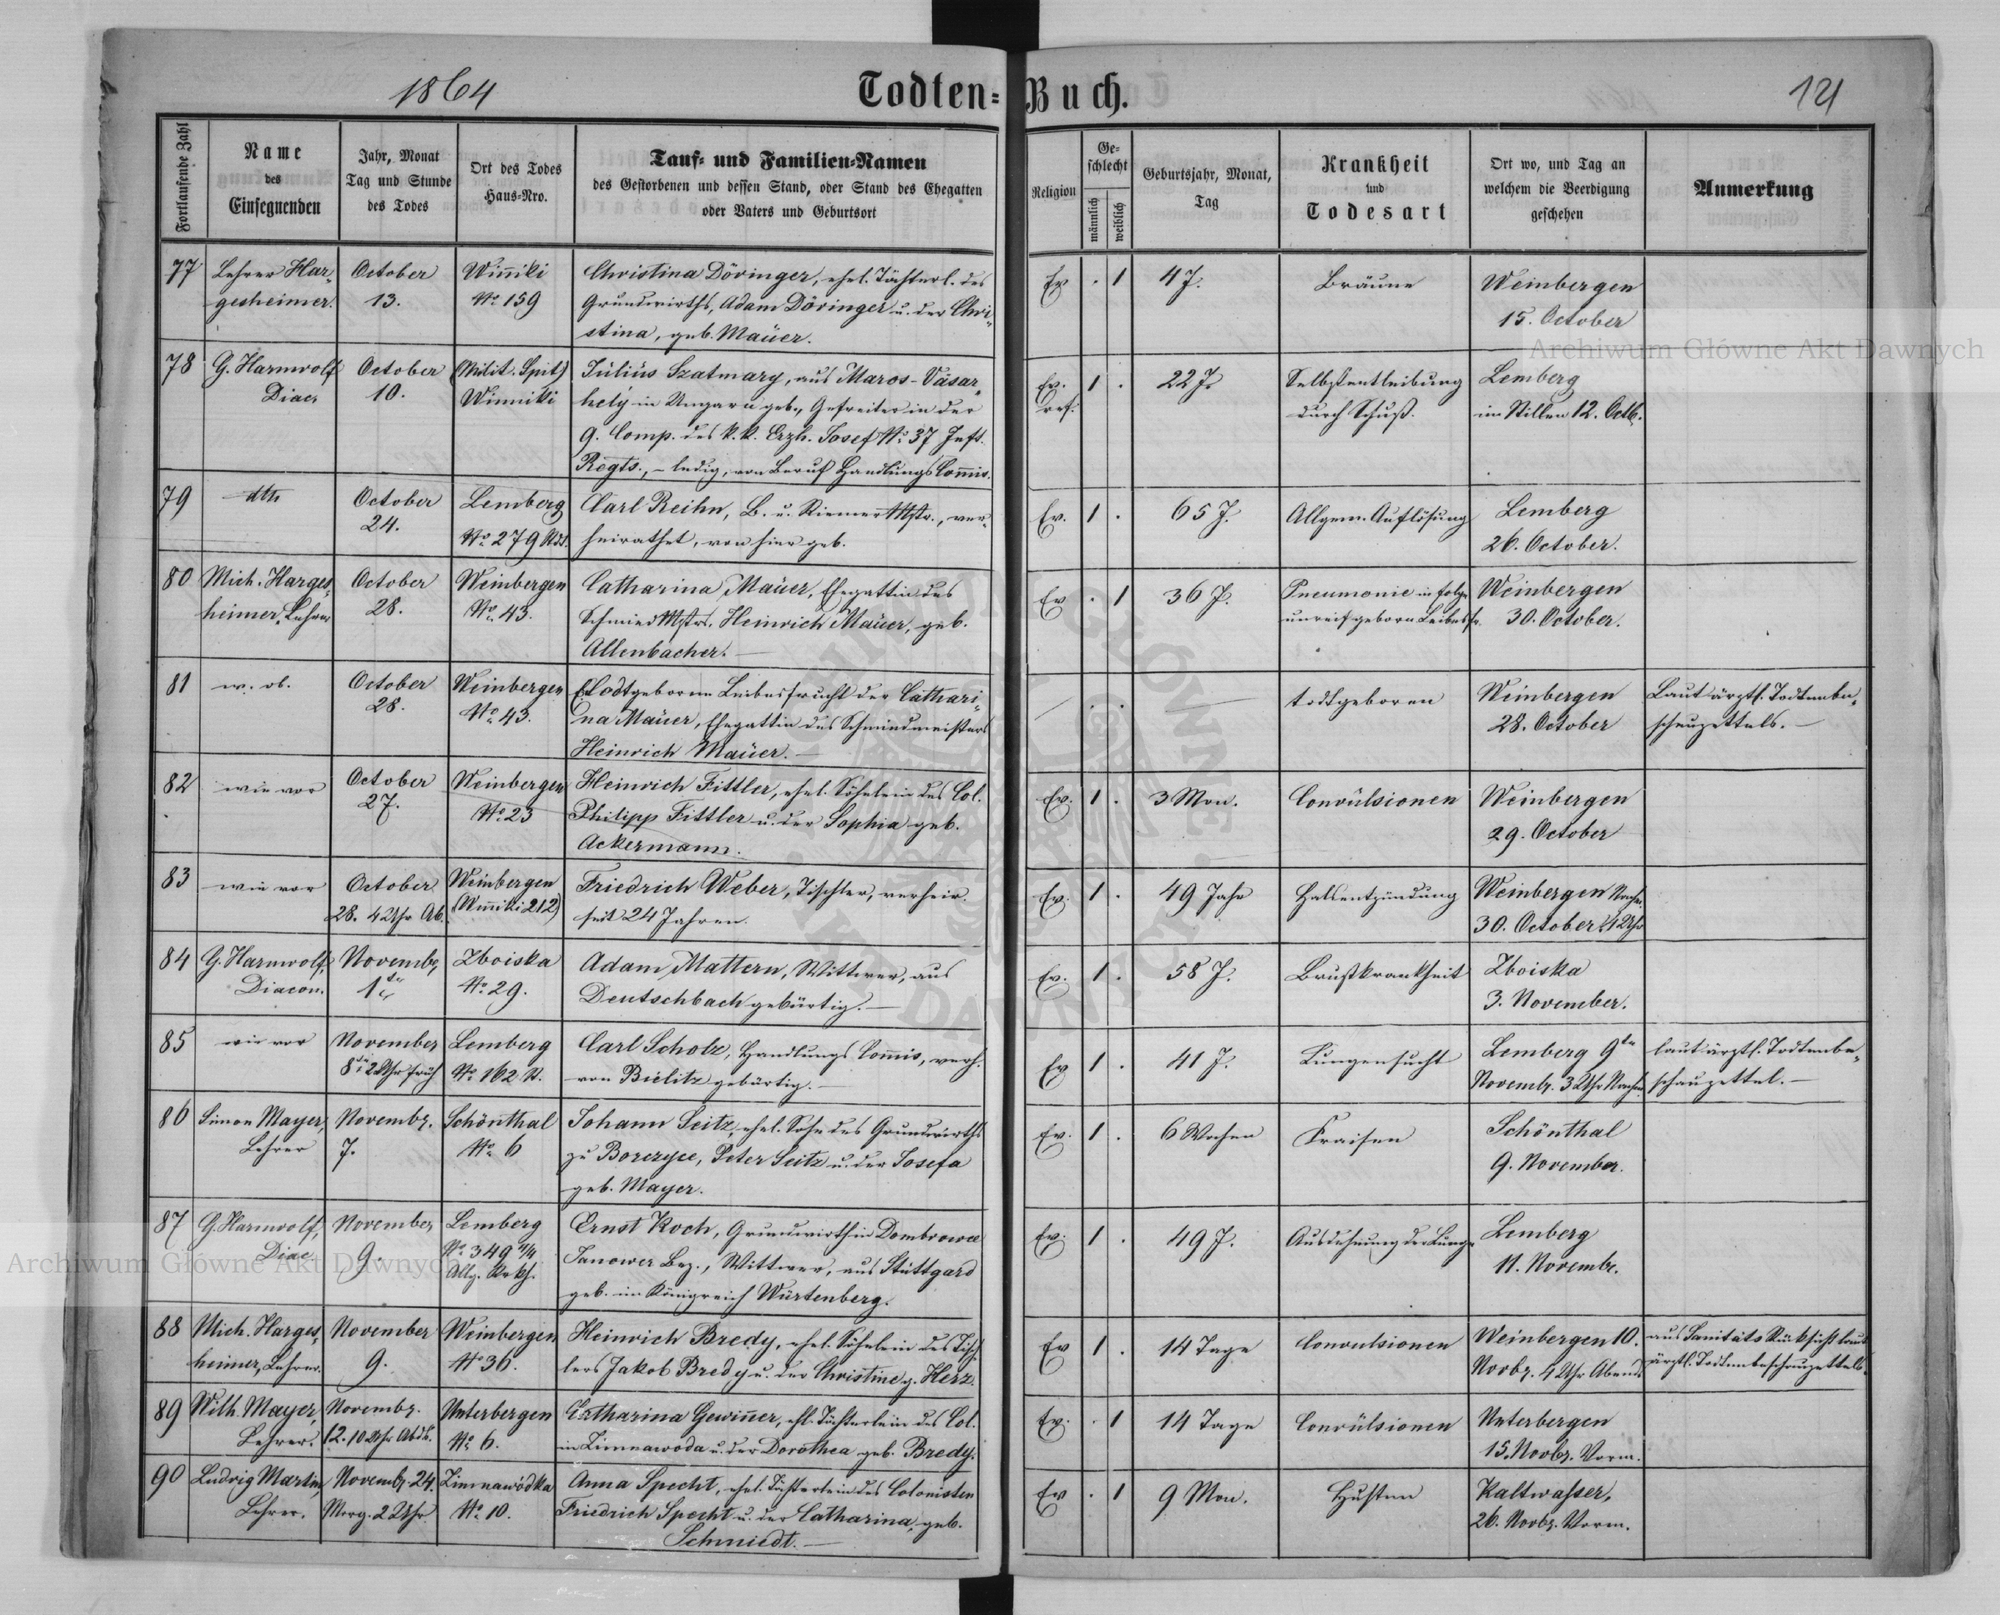 1864
Todten-Buch.
121
Fortlaufende Zahl
Name
des
Einsegnenden
Jahr, Monat
Tag und Stunde
des Todes
Ort des Todes
Haus-Nro.
Tauf- und Familien-Namen
des Gestorbenen und dessen Stand, oder Stand des Ehegatten
oder Vaters und Geburtsort
Religion
Ge-
schlecht
männlich
weiblich
Geburtsjahr, Monat,
Tag
Krankheit
und
Todesart
Ort wo, und Tag an
welchem die Beerdigung
geschehen
Anmerkung
77
Lehrer Har-
gesheimer.
October
13.
Winniki
No. 159
Christina Döringer, ehel. Töchterl. des
Grundwirths, Adam Döringer u. der Chri-
stina, geb. Maüer.
Ev
. 1
4 J.
Bräune
Weinbergen
15. October
78
G. Harmwolf
Diac.
October
10.
(Milit. Spit)
Winniki
Július Szatmary, aus Maros-Vásar-
hely in Ungarn geb., Gefreiter in der
9. Comp. des k. k. Erzh. Josef No. 37 Inft.
Regts., - ledig, von Beruf Handlungs Commis.
Ev.
ref.
1 .
22 J.
Selbstentleibung
durch Schuß.
Lemberg
im Stillen 12. Octb.
79
dto
October
24.
Lemberg
No. 279
Carl Reihn, B. u. Riemer Mstr., ver-
heirathet, von hier geb.
Ev.
1 .
65 J.
Allgem. Auflösung
Lemberg
26. October.
80
Mich. Harges-
heimer, Lehrer
October
28.
Weinbergen
No. 43.
Catharina Maüer, Ehegattin des
Schmied Mstrs. Heinrich Maüer, geb.
Allenbacher. —
Ev
. 1
36 J.
Pneumonie in folge
unreif geborn Leibesfr.
Weinbergen
30. October.
81
w. ob.
October
28.
Weinbergen
No. 43.
Todtgeborne Leibesfrucht der Cathari-
na Maüer, Ehegattin des Schmiedmeisters
Heinrich Maüer. —
. .
todtgeboren
Weinbergen
28. October
Laut ärztl. Todtenbe-
schauzettels. —
82
wie vor
October
27.
Weinbergen
No. 23
Heinrich Fittler, ehel. Söhnlein des Col.
Philipp Fittler u. der Sophia geb.
Ackermann.
Ev.
1 .
3 Mon.
Convülsionen
Weinbergen
29. October
83
wie vor
October
28. 4 Uhr Ab.
Weinbergen
(Winniki 212)
Friedrich Weber, Tischler, verheir.
seit 24 Jahren.
Ev.
1 .
49 Jahr
Halsentzündung
Weinbergen Nachm.
30. October 4 Uhr
84
G. Harmwolf,
Diacon.
Novembr.
1.
Zboiska
No. 29.
Adam Mattern, Wittwer, aus
Deutschbach gebürtig. —
Ev.
1 .
58 J.
Brustkrankheit
Zboiska
3. November.
85
wie vor
November
8. 2 Uhr früh
Lemberg
No. 162
Carl Scholz, Handlungs Commis, verh.
von Bielitz gebürtig. —
Ev
1 .
41 J.
Lungensucht
Lemberg 9ten
Novembr. 3 Uhr Nachm.
laut ärztl. Todtenbe-
schauzettel. —
86
Simon Mayer,
Lehrer
Novembr.
7.
Schönthal
No. 6
Johann Seitz, ehel. Sohn des Grundwirths
zu Borczyce, Peter Seitz u. der Josefa
geb. Mayer.
Ev.
1 .
6 Wochen
Fraisen
Schönthal
9. November.
87
G. Harmwolf,
Diac.
November
9.
Lemberg
No. 349 4/4
Allg. Krkh.
Ernst Koch, Grundwirth in Dombrowa
Janower Bez., Wittwer, aus Stüttgard
geb. im Königreich Würtenberg.
Ev.
1 .
49 J.
Ausdehnung der Lunge
Lemberg
11. Novembr.
88
Mich. Harges-
heimer, Lehrer.
November
9.
Weinbergen
No 36.
Heinrich Bredy, ehel. Söhnlein des Tisch-
lers Jakob Bredy u. der Christine g. Herz.
Ev
1 .
14 Tage
Convulsionen
Weinbergen 10.
Novbr. 4 Uhr Abends
aus Sanitäts Rücksicht laut
ärztl. Todtenbeschauzettels.
89
Wilh. Mayer,
Lehrer.
Novembr.
12. 10 Uhr Abds.
Unterbergen
No. 6.
Catharina Gewinner, ehl. Töchterlein des Col.
in Zimnawoda u. der Dorothea geb. Bredy.
Ev.
. 1
14 Tage
Convülsionen
Unterbergen
15. Novbr. Vorm.
90
Ludwig Martin,
Lehrer.
Novembr. 24.
Morg. 2 Uhr
Zimnawódka
No. 10.
Anna Specht, ehel. Töchterlein des Colonisten
Friedrich Specht u. der Catharina, geb.
Schmiedt. —
Ev
. 1
9 Mon.
Husten
Kaltwasser,
26. Novbr. Vorm.
Archiwum Główne Akt Dawnych
Archiwum Główne Akt Dawnych
ARCHIWUM GŁÓWNE AKT DAWNYCH